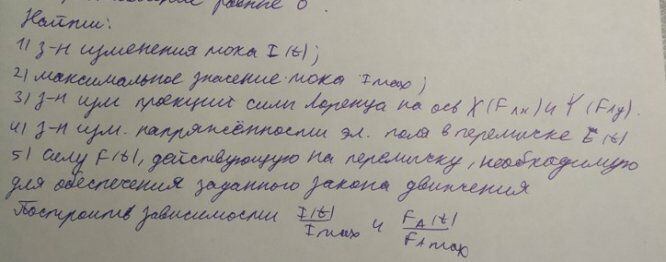 равные 0.
Найти:
1) з-н изменения тока I(t);
2) максимальное значение тока Imax;
3) з-н изм проекций силы Лоренца на ось X (Fлx) и Y (Fлy).
4) з-н изм. напряжённости эл. поля в перемычке E(t)
5) силу F(t), действующую на перемычку, необходимую
для обеспечения заданного закона движения
Построить зависимости I(t)/Imax и FA(t)/FAmax